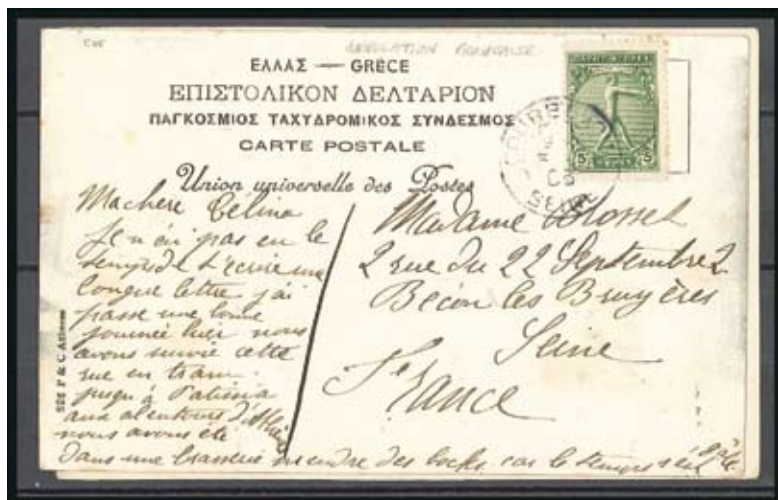 ΕΛΛΑΣ — GRÈCE
ΕΠΙΣΤΟΛΙΚΟΝ ΔΕΛΤΑΡΙΟΝ
ΠΑΓΚΟΣΜΙΟΣ ΤΑΧΥΔΡΟΜΙΚΟΣ ΣΥΝΔΕΣΜΟΣ
CARTE POSTALE
Union universelle des Postes
5 5
SEINE
Ma chère Célina
Je n'ai pas eu le
temps de t'écrire une
longue lettre j'ai
passé une
journée hier nous
avons suivie cette
rue en tram
jusqu'à
aux alentours d'
nous avons été
dans une brasserie prendre des bocks car le temps s'est
Madame Blosset
2 rue du 22 Septembre 2
Bécon les Bruyères
Seine
France